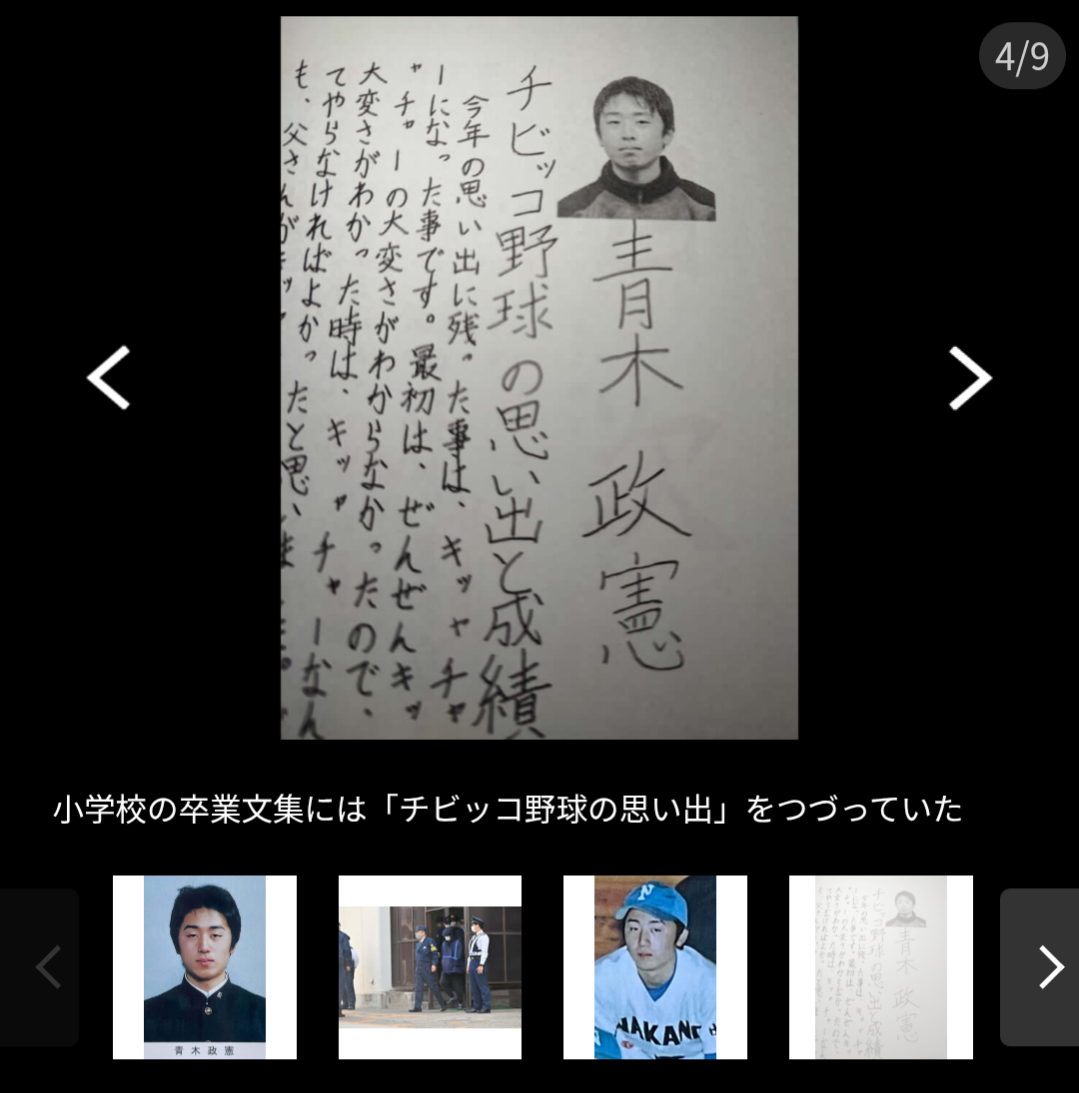 4/9
青木 政憲
チビッコ野球の思い出と成績
今年の思い出に残った事は、キャッチャ
ーになった事です。最初は、ぜんぜんキャッ
チャーの大変さがわからなかったので、
大変さがわかった時は、キャッチャーなん
てやらなければよかったと思いま
も、父さんが
小学校の卒業文集には「チビッコ野球の思い出」をつづっていた
青木政憲
N
NAKANO